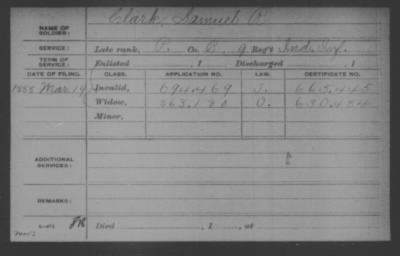 Clark, Samuel R.
NAME OF SOLDIER:
SERVICE: Late rank, P. Co. B, 9 Reg't Ind. Inf.
TERM OF SERVICE: Enlisted , 1 Discharged , 1
DATE OF FILING. CLASS. APPLICATION NO. LAW. CERTIFICATE NO.
1888 Mar 19 Invalid, 694.469 J. 665.445
Widow, 863.180 O. 630.454
Minor,
ADDITIONAL SERVICES:
REMARKS:
Died , 1 , at